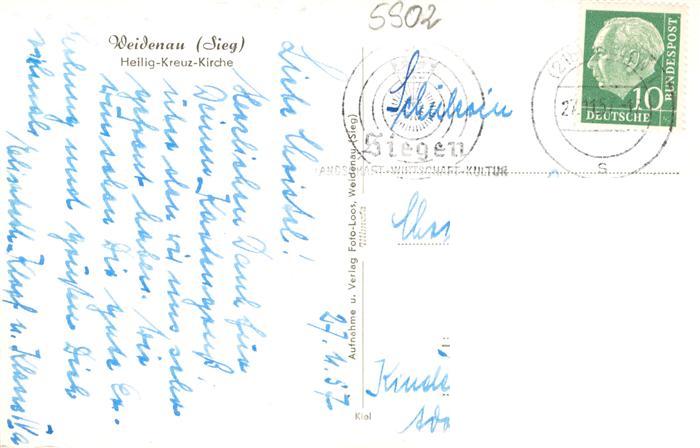 5902
Weidenau (Sieg)
Heilig-Kreuz-Kirche
Liebe Christel!
Herzlichen Dank für
Deinen Kartengruß
über den wir uns sehr
gefreut haben. Wir
wünschen Dir gute Er-
holung und grüßen Dich
27.1.57
Aufnahme u. Verlag Foto-Loos, Weidenau (Sieg)
Kiel
Schülerin
Siegen
LANDSCHAFT-WIRTSCHAFT-KULTUR
10
DEUTSCHE
BUNDESPOST
s
Chr
Kinde